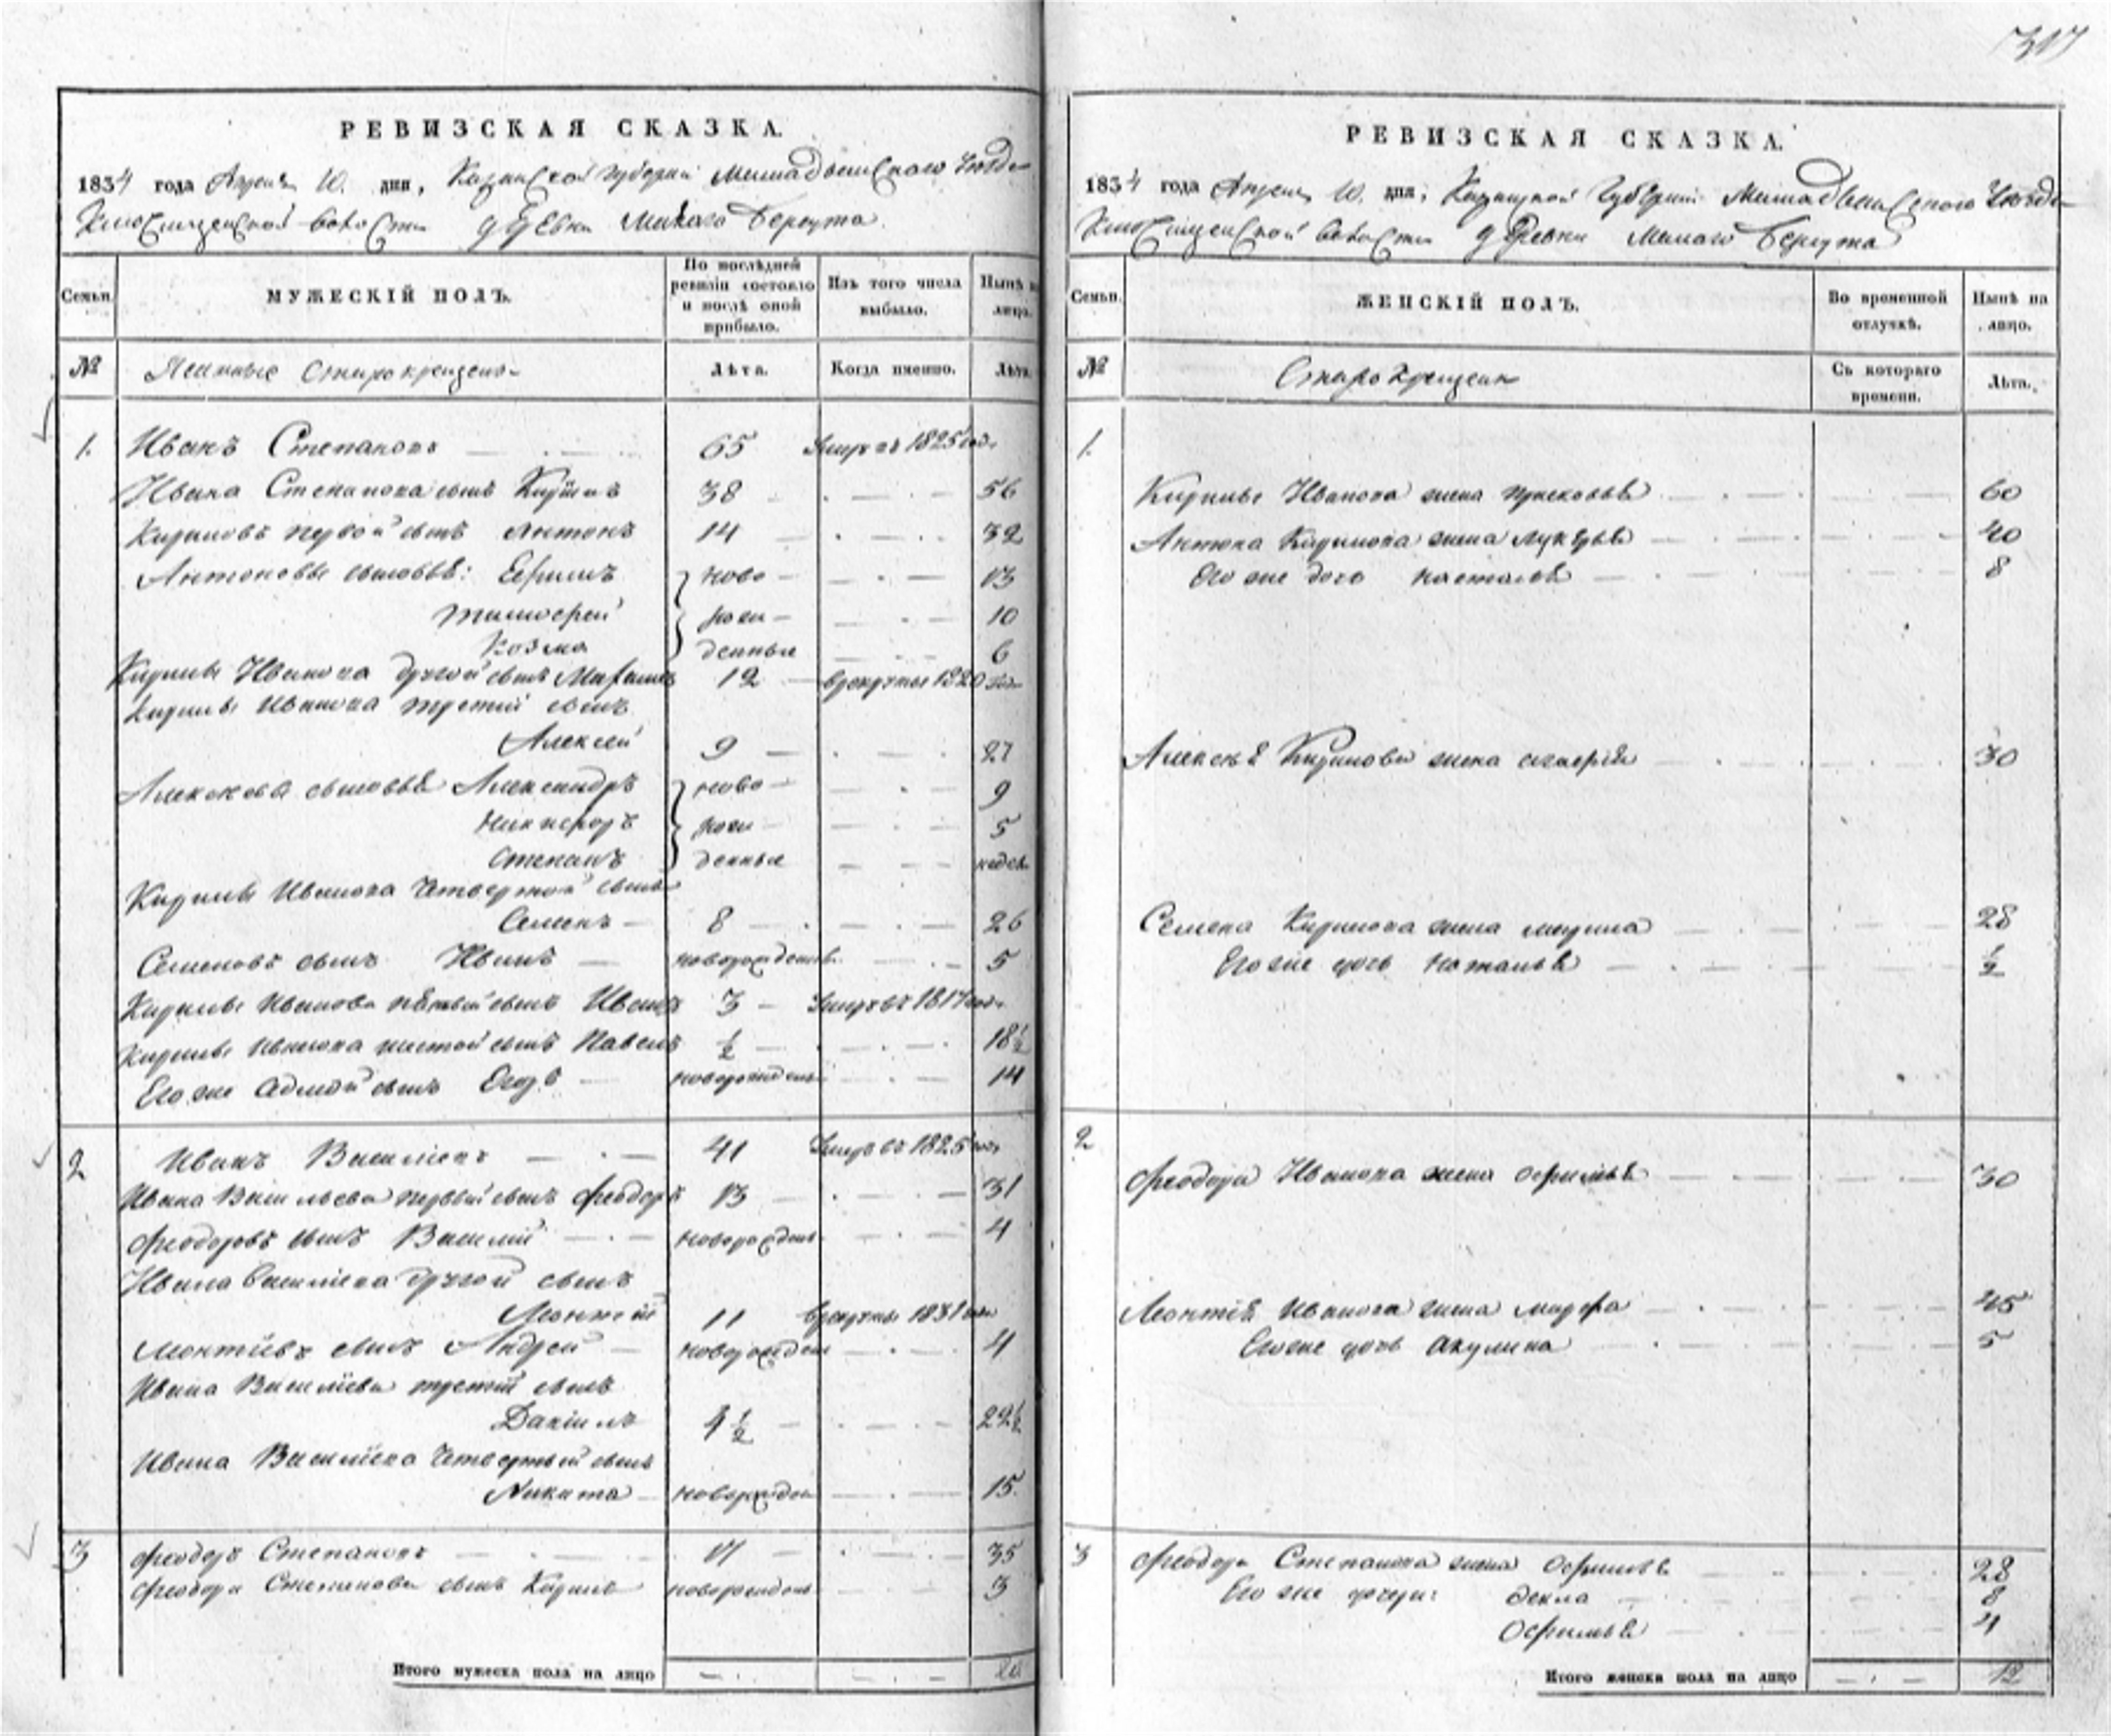 317
РЕВИЗСКАЯ СКАЗКА.
1834 года Апреля 10. дня, Казанской Губернии Мамадышского Уезда
волости деревни Малаго Бергута
Семьи. МУЖЕСКІЙ ПОЛЪ. По послѣдней ревизіи состояло и послѣ оной прибыло. Изъ того числа выбыло. Нынѣ на лицо.
№ Ясашные Старокрещены Лѣта. Когда именно. Лѣта.
1. Иванъ Степановъ 65 Умре въ 1825 год.
Ивана Степанова сынъ 38 56
Кириловъ первой сынъ Антонъ 14 32
Антоновы сыновья: Ефимъ ново 13
Тимофей рож 10
Козма денные 6
Кирилы Иванова другой сынъ 12 в рекруты 1820 год
Кирилы Иванова третій сынъ
Алексей 9 27
Алексеева сыновья Александръ ново 9
Никифоръ рож 5
Степанъ денные недел
Кирилы Иванова Четвертой сынъ
Семенъ 8 26
Семеновъ сынъ Иванъ новорожденъ 5
Кирилы Иванова пятый сынъ Иванъ 3 Умре въ 1817 год.
Кирилы Иванова шестой сынъ Павелъ ½ 18½
Его же седмой сынъ Егоръ новорожден 14
2 Иванъ Васильевъ 41 Умре въ 1825 год
Ивана Васильева первый сынъ Феодоръ 13 31
Феодоровъ сынъ Василій новорожден 4
Ивана Васильева другой сынъ
Леонтей 11 в рекруты 1831 год
Леонтіевъ сынъ Андрей новорожден 4
Ивана Васильева третій сынъ
Даніилъ 4½ 22½
Ивана Васильева Четвертый сынъ
Никита новорожден 15.
3 Феодоръ Степановъ 17 35
Феодора Степанова сынъ новорожден 3
Итого мужеска пола на лицо 20
РЕВИЗСКАЯ СКАЗКА.
1834 года Апреля 10. дня, Казанской Губерніи Мамадышского Уезда
волости деревни Малаго Бергута
Семьи. ЖЕНСКІЙ ПОЛЪ. Во временной отлучкѣ. Нынѣ на лицо.
№ Старокрещены Съ котораго времени. Лѣта.
1.
Кирилы Иванова жена Прасковья 60
Антона Кирилова жена Лукерья 40
Его же дочь Насталья 8
Алексея Кирилова жена 30
Семена Кирилова жена Марина 28
Его же дочь Наталья ½
2
Феодора Иванова жена Офимья 30
Леонтія Иванова жена Марфа 45
Его же дочь Акулина 5
3 Феодора Степанова жена Офимья 28
Его же дочери: Фекла 8
Офимья 4
Итого женска пола на лицо 12